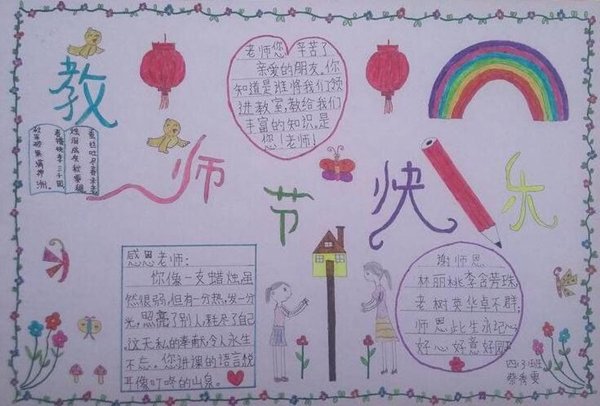 教师节快乐
老师您辛苦了
亲爱的朋友,你
知道是谁将我们领
进教室,教给我们
丰富的知识,是
您!老师!
感恩老师:
你像一支蜡烛,虽
然很弱,但有一分热,发一分
光,照亮了别人,耗尽了自己
这无私的奉献,令人永生
不忘。您讲课的语言,悦
耳像叮咚的山泉。
谢师恩
林丽桃李含芳珠,
老树英华卓不群;
师恩此生永记心
好心好意好
四(3)班
蔡秀